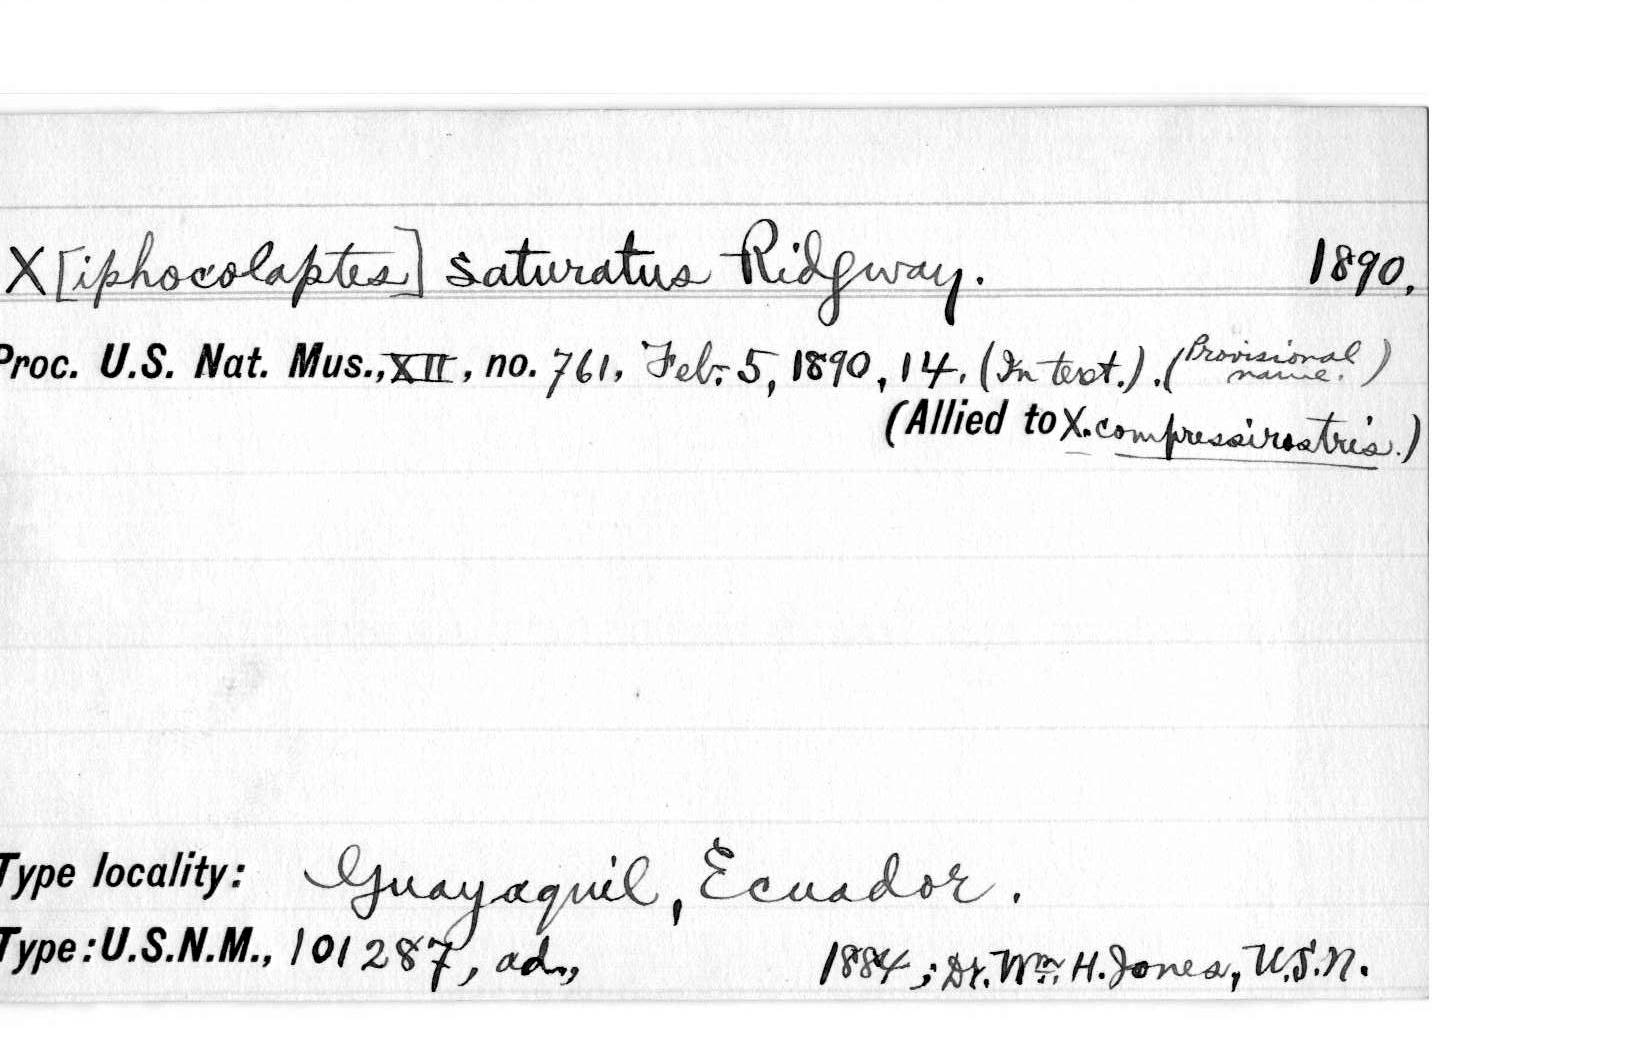 X[iphocolaptes] saturatus Ridgway. 1890.
Proc. U.S. Nat. Mus., XII, no. 761, Feb. 5, 1890, 14. (In text.). (Provisional name.)
(Allied to X. compressirostris.)
Type locality: Guayaquil, Ecuador.
Type: U.S.N.M., 101287, ad., 1884; Dr. Wm. H. Jones, U.S.N.